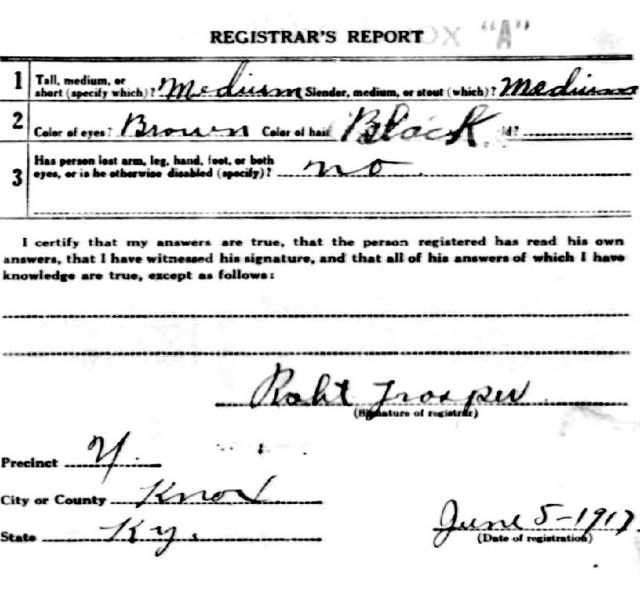 REGISTRAR'S REPORT "A"
1 Tall, medium, or short (specify which)? Medium Slender, medium, or stout (which)? Medium
2 Color of eyes? Brown Color of hair Black ld?
3 Has person lost arm, leg, hand, foot, or both
eyes, or is he otherwise disabled (specify)? no
I certify that my answers are true, that the person registered has read his own
answers, that I have witnessed his signature, and that all of his answers of which I have
knowledge are true, except as follows:
Robt Trosper
(Signature of registrar)
Precinct
City or County Knox
State Ky.
June 5-1917
(Date of registration)